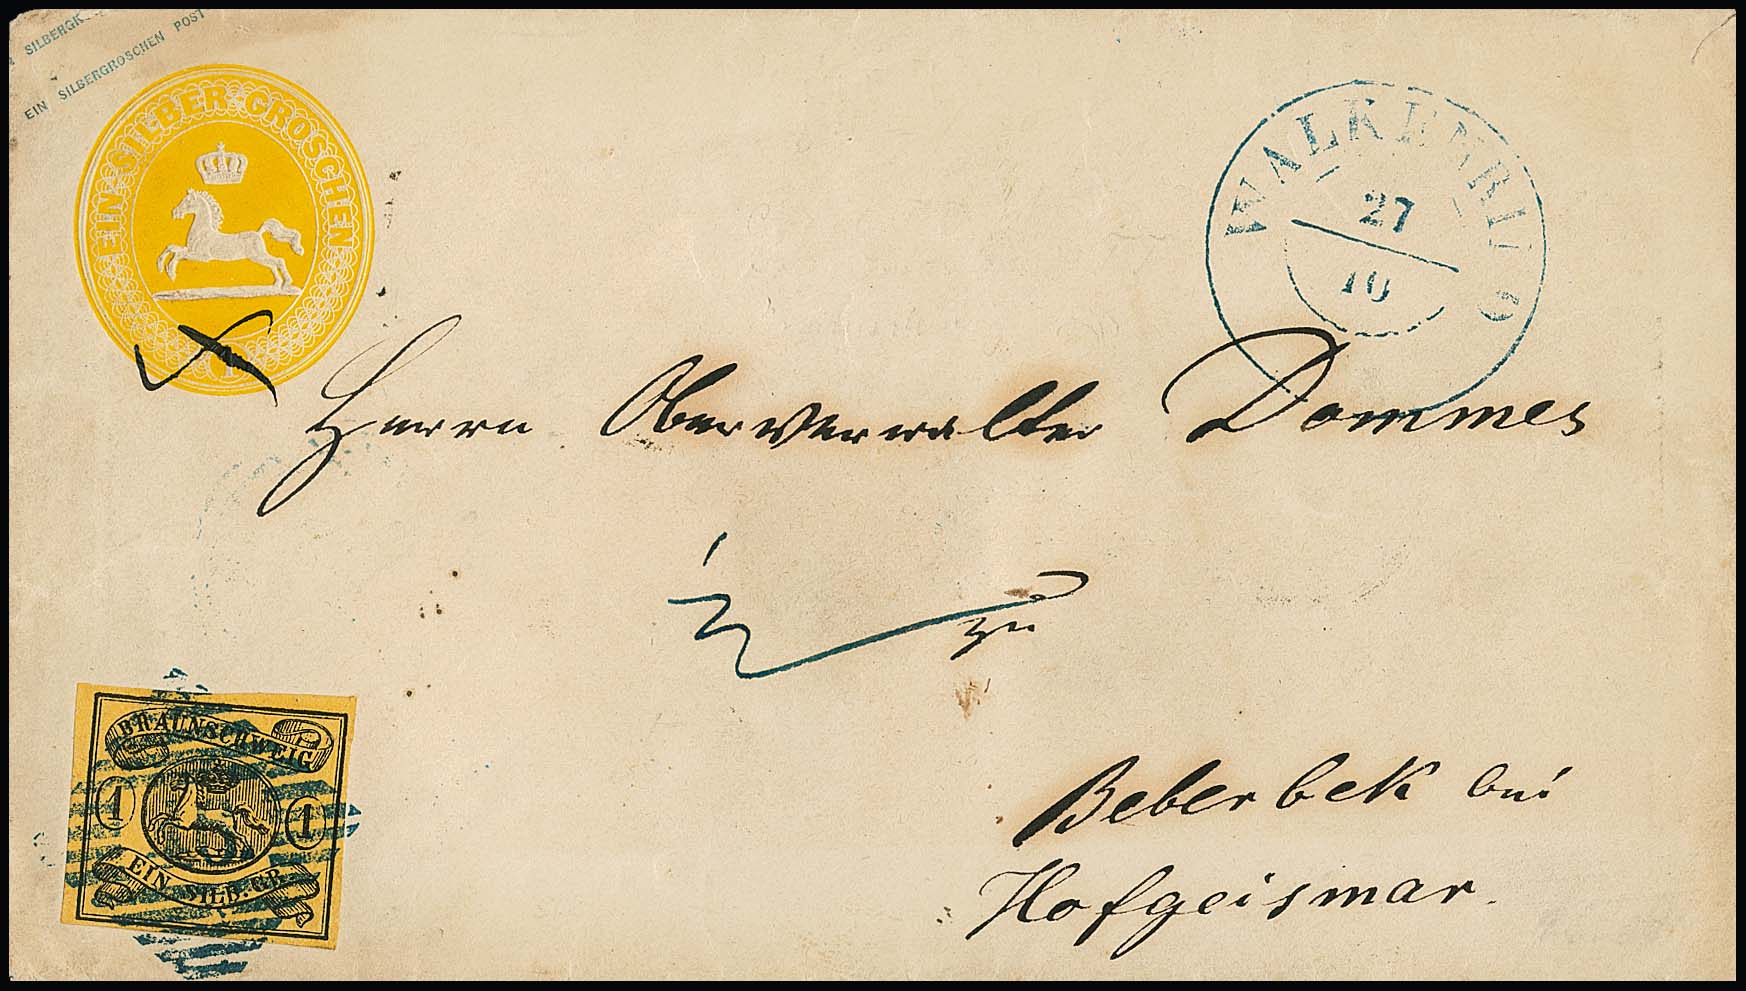 SILBERGR
EIN SILBERGROSCHEN POST
EIN SILBER GROSCHEN
1
WALKENRIED
27
10
Herrn Oberverwalter Dommes
zu
Beberbek bei
Hofgeismar.
BRAUNSCHWEIG
1 1
EIN SILB. GR.